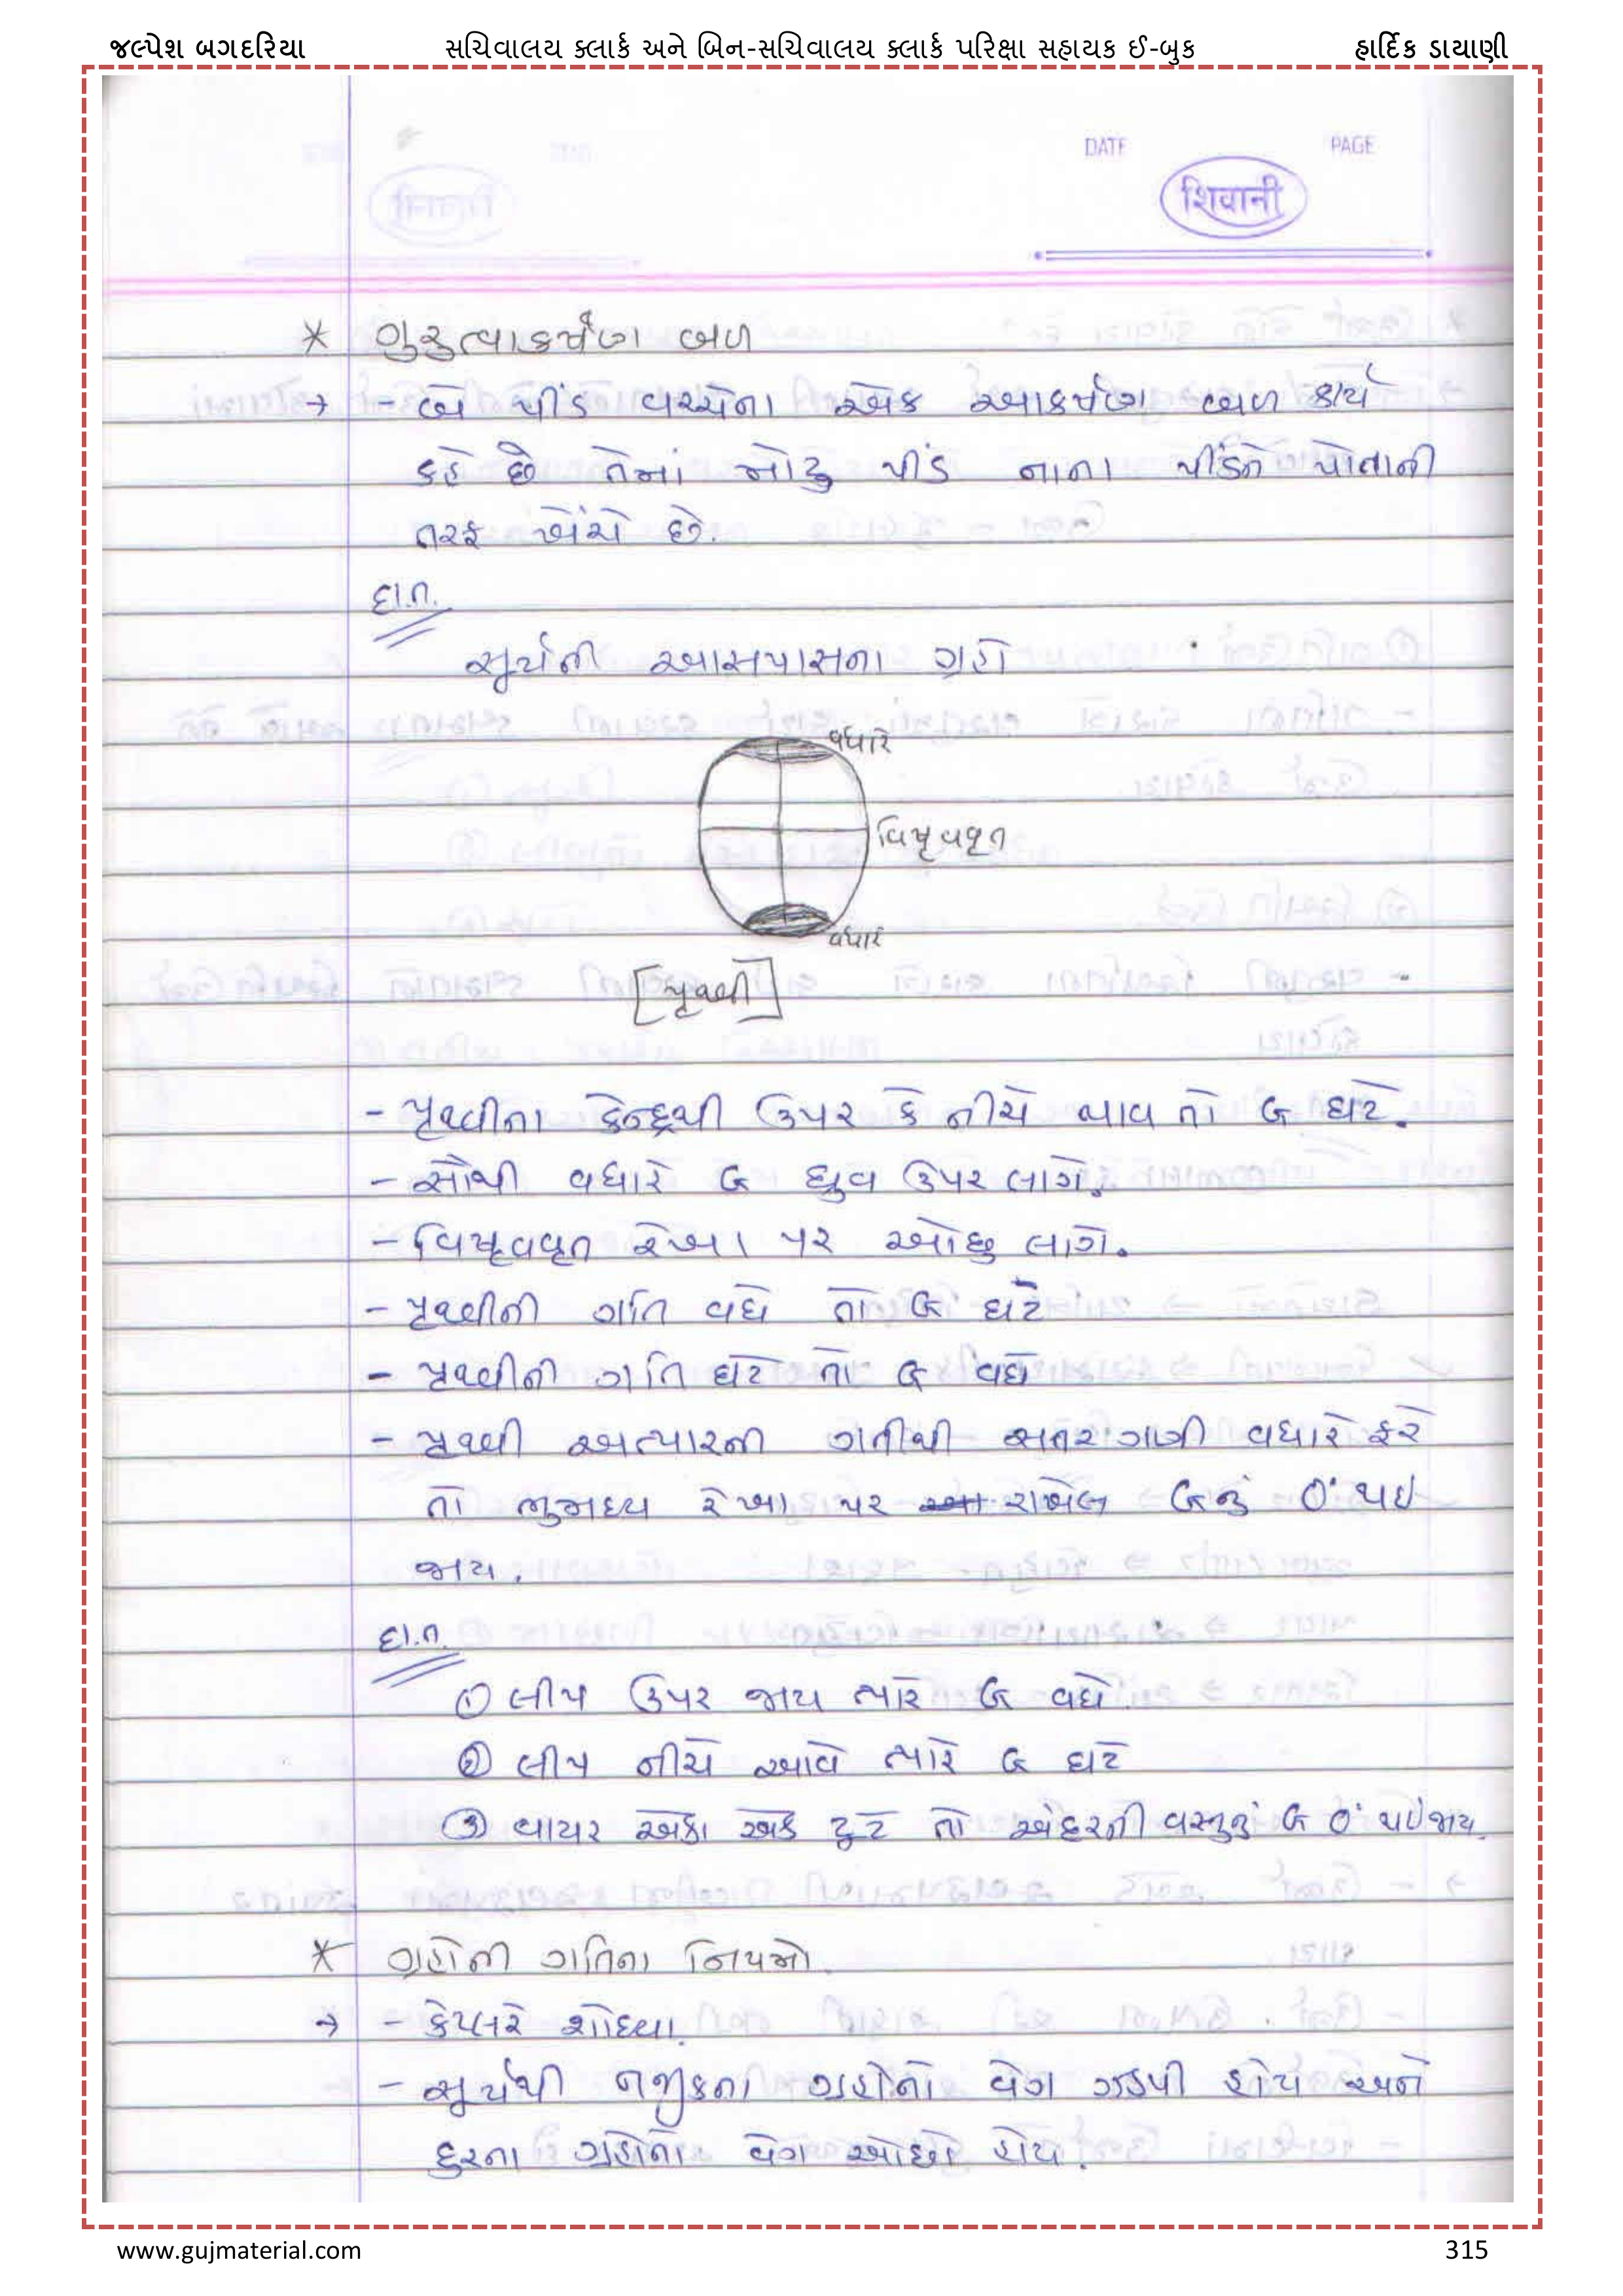 જલ્પેશ બગદરિયા સચિવાલય ક્લાર્ક અને બિન-સચિવાલય ક્લાર્ક પરિક્ષા સહાયક ઈ-બુક હાર્દિક ડાયાણી
DATE PAGE
शिवानी
* ગુરુત્વાકર્ષણ બળ
→ - બે પીંડ વચ્ચેના એક આકર્ષણ બળ કાર્ય
કહે છે તેમાં મોટુ પીંડ નાના પીંડને પોતાની
તરફ ખેંચે છે.
દા.ત.
સૂર્યની આસપાસના ગ્રહો
વધારે
વિષૃવવૃત
વધારે
[પૃથ્વી]
- પૃથ્વીના કેન્દ્રથી ઉપર કે નીચે જાવ તો G ઘટે.
- સૌથી વધારે G ધ્રુવ ઉપર લાગે.
- વિષૃવવૃત રેખા પર ઓછુ લાગે.
- પૃથ્વીની ગતિ વધે તો G ઘટે
- પૃથ્વીની ગતિ ઘટે તો G વધે
- પૃથ્વી અત્યારની ગતીથી સતર ગણી વધારે ફરે
તો ભુમધ્ય રેખા પર રાખેલ Gનું 0 થઇ
જાય.
દા.ત.
① લીપ ઉપર જાય ત્યારે G વધે.
② લીપ નીચે આવે ત્યારે G ઘટે
③ વાયર એકા એક ટુટે તો અંદરની વસ્તુનું G 0 થઇજાય.
* ગ્રહોની ગતિના નિયમો.
→ - કેપ્લરે શોધ્યા.
- સૂર્યથી નજીકના ગ્રહોનો વેગ ઝડપી હોય અને
દુરના ગ્રહોનો વેગ ઓછો હોય.
www.gujmaterial.com 315